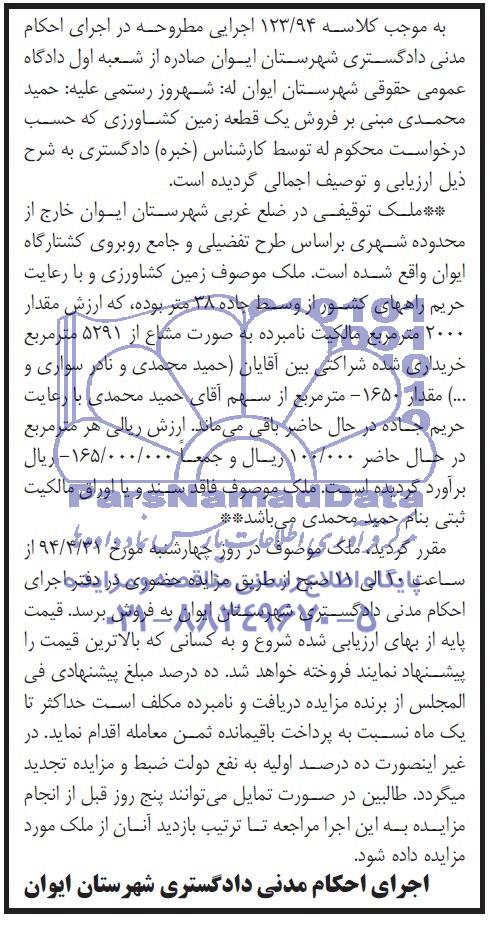 به موجب کلاسه ۱۲۳/۹۴ اجرایی مطروحه در اجرای احکام
مدنی دادگستری شهرستان ایوان صادره از شعبه اول دادگاه
عمومی حقوقی شهرستان ایوان له: شهروز رستمی علیه: حمید
محمدی مبنی بر فروش یک قطعه زمین کشاورزی که حسب
درخواست محکوم له توسط کارشناس (خبره) دادگستری به شرح
ذیل ارزیابی و توصیف اجمالی گردیده است.
**ملک توقیفی در ضلع غربی شهرستان ایوان خارج از
محدوده شهری براساس طرح تفضیلی و جامع روبروی کشتارگاه
ایوان واقع شده است. ملک موصوف زمین کشاورزی و با رعایت
حریم راههای کشور از وسط جاده ۳۸ متر بوده، که ارزش مقدار
۲۰۰۰ مترمربع مالکیت نامبرده به صورت مشاع از ۵۲۹۱ مترمربع
خریداری شده شراکتی بین آقایان (حمید محمدی و نادر سواری و
...) مقدار ۱۶۵۰- مترمربع از سهم آقای حمید محمدی با رعایت
حریم جاده در حال حاضر باقی می‌ماند. ارزش ریالی هر مترمربع
در حال حاضر ۱۰۰/۰۰۰ ریال و جمعاً ۱۶۵/۰۰۰/۰۰۰- ریال
برآورد گردیده است. ملک موصوف فاقد سند و یا اوراق مالکیت
ثبتی بنام حمید محمدی می‌باشد**
مقرر گردید، ملک موصوف در روز چهارشنبه مورخ ۹۴/۴/۳۱ از
ساعت ۱۰ الی ۱۱ صبح از طریق مزایده حضوری در دفتر اجرای
احکام مدنی دادگستری شهرستان ایوان به فروش برسد. قیمت
پایه از بهای ارزیابی شده شروع و به کسانی که بالاترین قیمت را
پیشنهاد نمایند فروخته خواهد شد. ده درصد مبلغ پیشنهادی فی
المجلس از برنده مزایده دریافت و نامبرده مکلف است حداکثر تا
یک ماه نسبت به پرداخت باقیمانده ثمن معامله اقدام نماید. در
غیر اینصورت ده درصد اولیه به نفع دولت ضبط و مزایده تجدید
میگردد. طالبین در صورت تمایل می‌توانند پنج روز قبل از انجام
مزایده به این اجرا مراجعه تا ترتیب بازدید آنان از ملک مورد
مزایده داده شود.
اجرای احکام مدنی دادگستری شهرستان ایوان
ParsNamadData
مرکز فرآوری اطلاعات پارس نماد داده‌ها
پایگاه اطلاع رسانی مناقصه و مزایده
۰۲۱-۸۸۳۴۹۶۷۰-۵